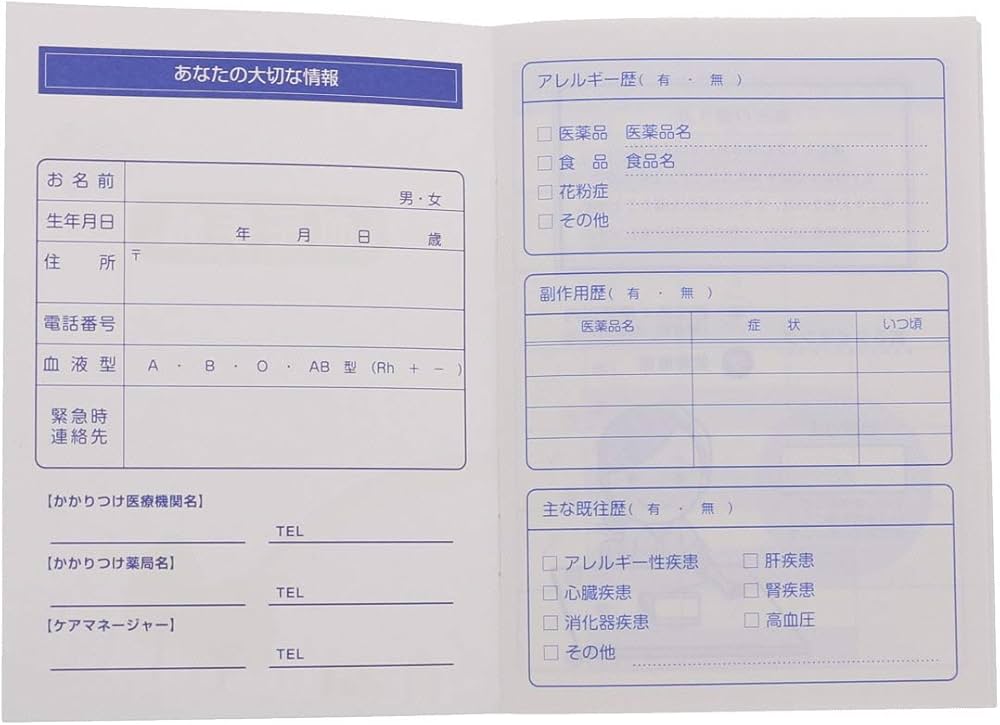 あなたの大切な情報
お名前
男・女
生年月日
年 月 日 歳
住 所
〒
電話番号
血液型
A ・ B ・ O ・ AB 型 (Rh + − )
緊急時
連絡先
【かかりつけ医療機関名】
TEL
【かかりつけ薬局名】
TEL
【ケアマネージャー】
TEL
アレルギー歴( 有 ・ 無 )
□ 医薬品 医薬品名
□ 食 品 食品名
□ 花粉症
□ その他
副作用歴( 有 ・ 無 )
医薬品名 症 状 いつ頃
主な既往歴( 有 ・ 無 )
□ アレルギー性疾患 □ 肝疾患
□ 心臓疾患 □ 腎疾患
□ 消化器疾患 □ 高血圧
□ その他